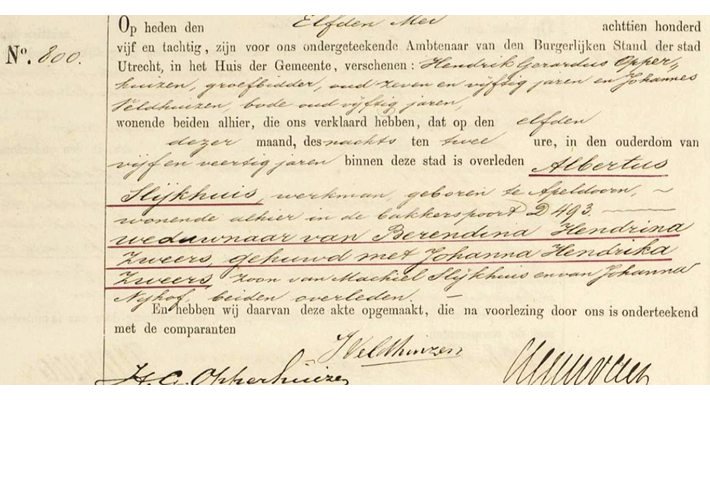 Op heden den Elfden Mei achttien honderd
Nº. 800. vijf en tachtig, zijn voor ons ondergeteekende Ambtenaar van den Burgerlijken Stand der stad
Utrecht, in het Huis der Gemeente, verschenen: Hendrik Gerardus Opper-
huizen, groefbidder, oud zeven en vijftig jaren en Johannes
Veldhuizen, bode oud vijftig jaren,
wonende beiden alhier, die ons verklaard hebben, dat op den elfden
dezer maand, des nachts ten twee ure, in den ouderdom van
vijf en veertig jaren binnen deze stad is overleden Albertus
Slijkhuis, werkman, geboren te Apeldoorn, ~
wonende alhier in de bakkerspoort D 493.
weduwnaar van Berendina Hendrina
Zweers, gehuwd met Johanna Hendrika
Zweers, zoon van Machiel Slijkhuis en van Johanna
Nijhof, beiden overleden. –
En hebben wij daarvan deze akte opgemaakt, die na voorlezing door ons is onderteekend
met de comparanten
JVeldhuizen
H. G. Opperhuizen